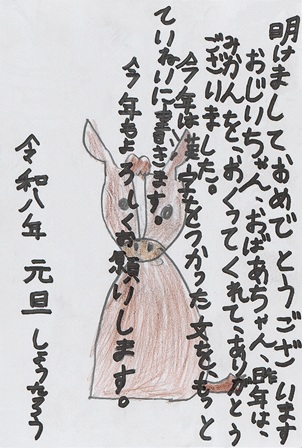 明けましておめでとうございます
おじいちゃん、おばあちゃん、昨年は、
みかんを、おくってくれて、ありがとう
ございました。
今年は、漢字をつかった文をもっと
ていねいに書きます。
今年もよろしくお願いします。
令和八年 元旦 しょうたろう